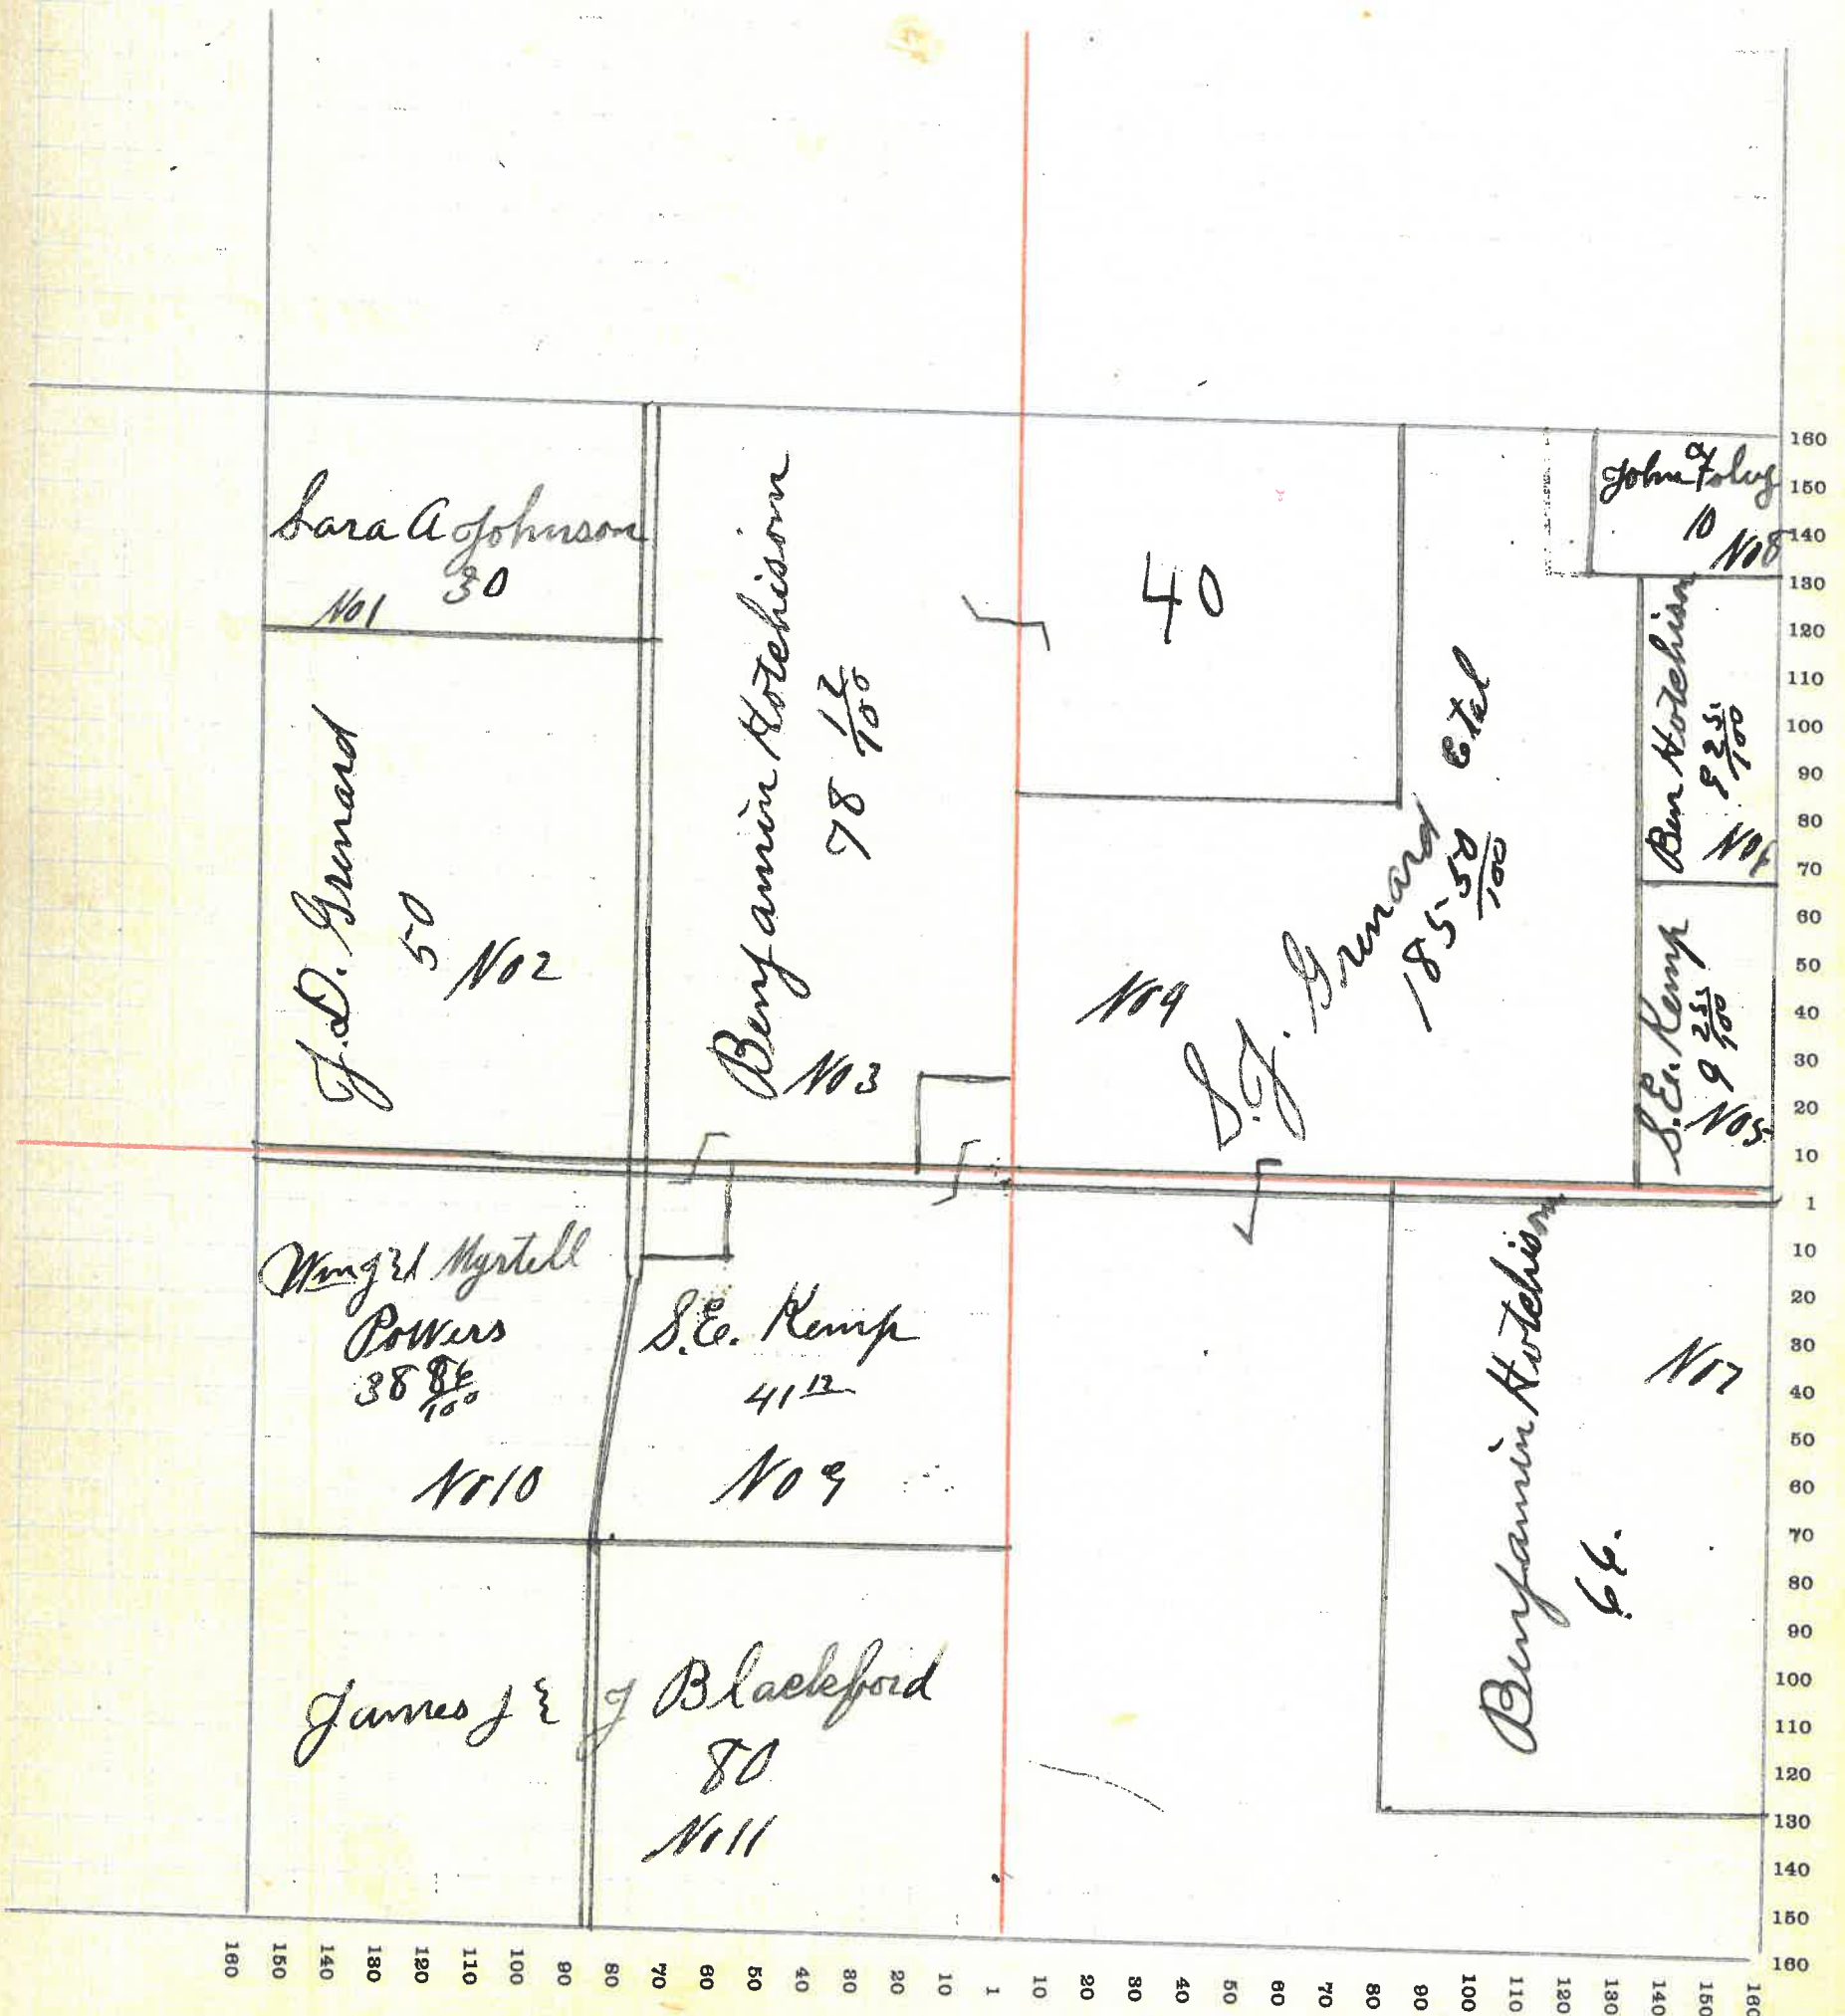 Sara A Johnson
30
No 1
J. D. Grenard
50
No 2
Benjamin Hotchison
78 12/100
No 3
40
S. J. Grenard Etal
185 50/100
No 9
John Foley
10
No 8
Ben Hotchison
9 25/100
No 6
S. E. Kemp
9 25/100
No 5
Myrtell
Powers
38 86/100
No 10
S. E. Kemp
41 12
No 9
James J & J Blackford
80
No 11
Benjamin Hotchison
No 7
160
150
140
130
120
110
100
90
80
70
60
50
40
30
20
10
1
10
20
30
40
50
60
70
80
90
100
110
120
130
140
150
160
160 150 140 130 120 110 100 90 80 70 60 50 40 30 20 10 1 10 20 30 40 50 60 70 80 90 100 110 120 130 140 150 160